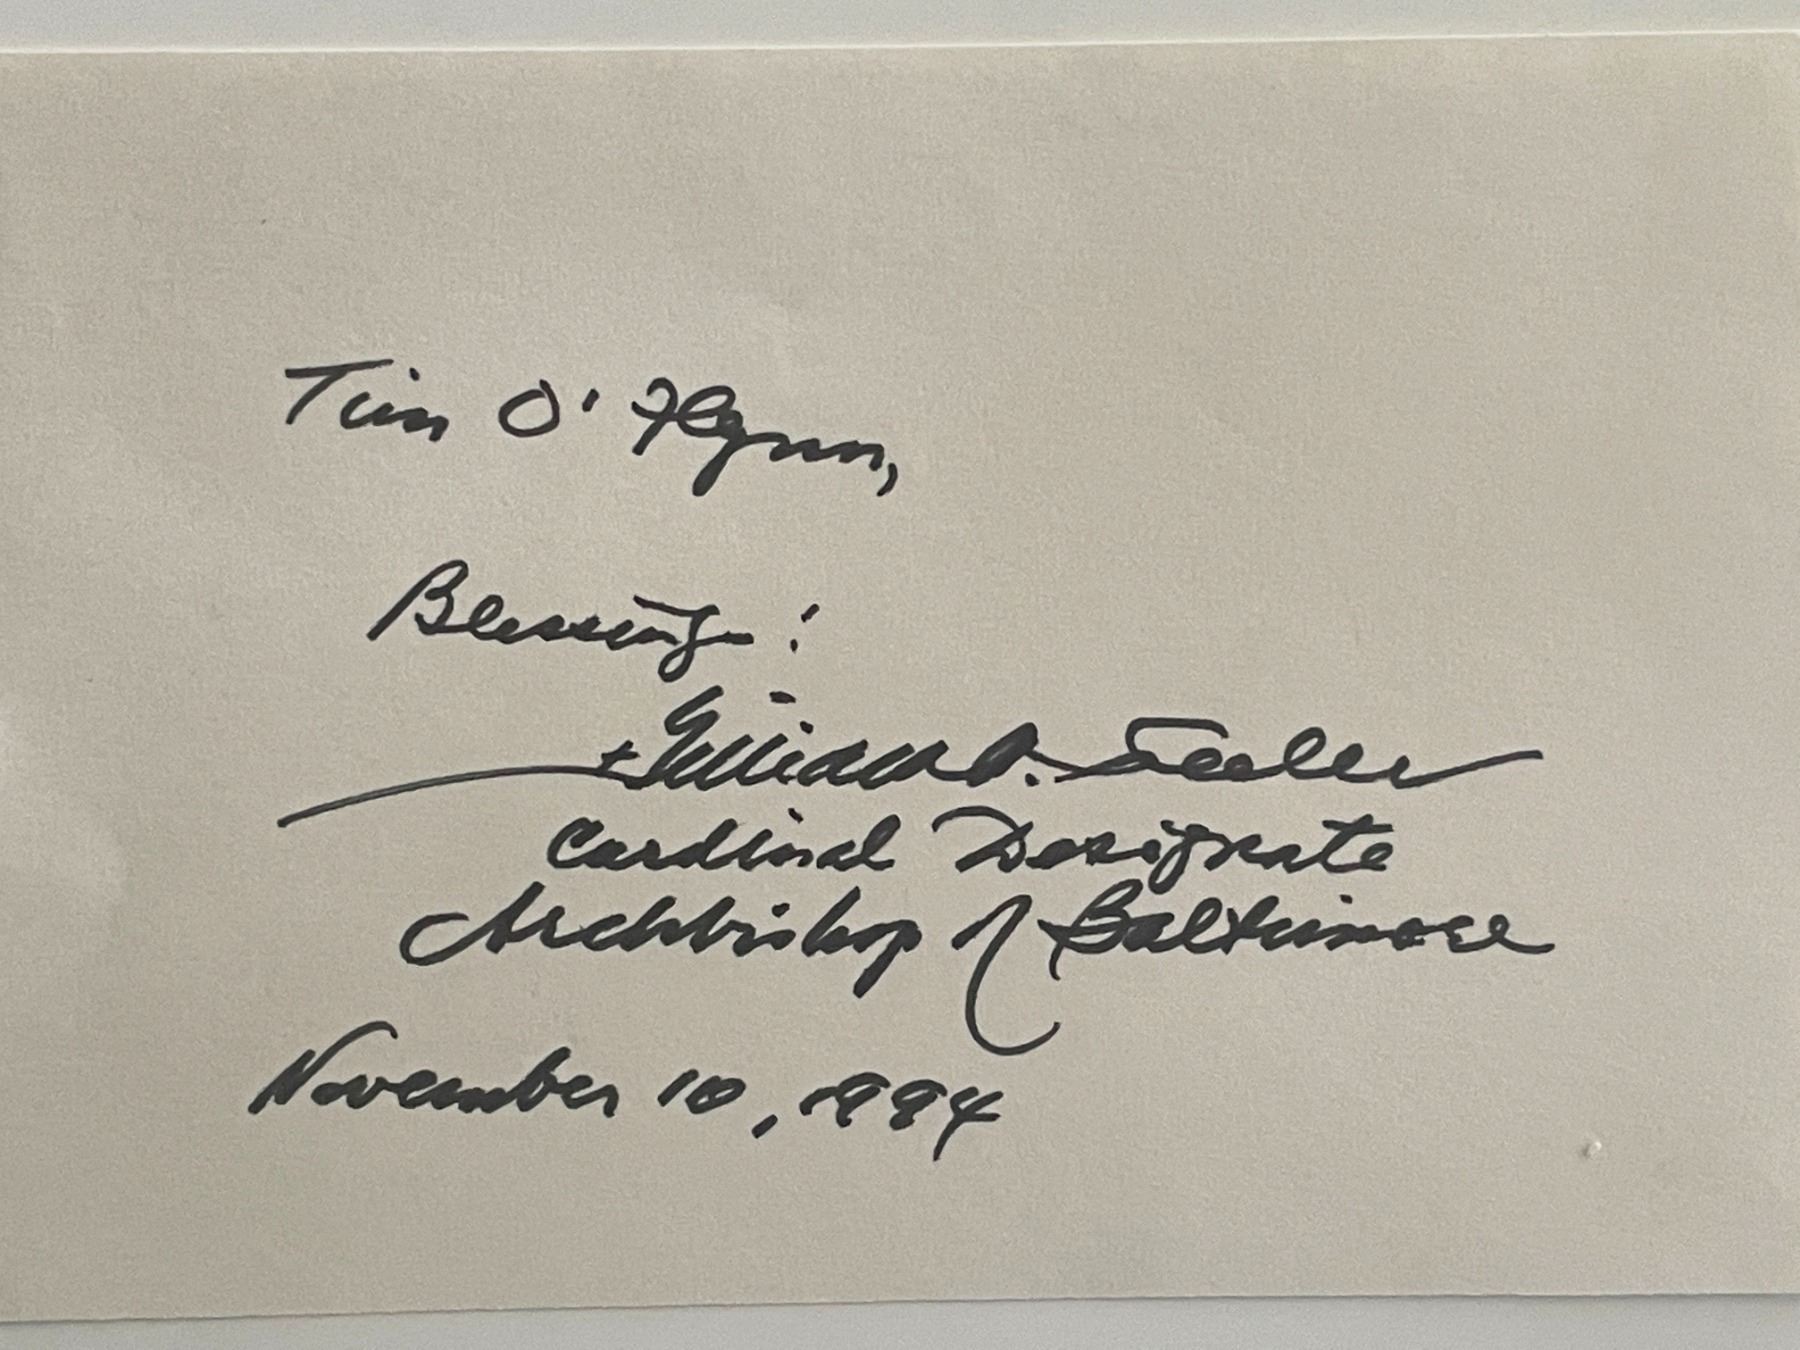 Tim O'Flynn,
Blessings!
+William H. Keeler
Cardinal Designate
Archbishop of Baltimore
November 10, 1994